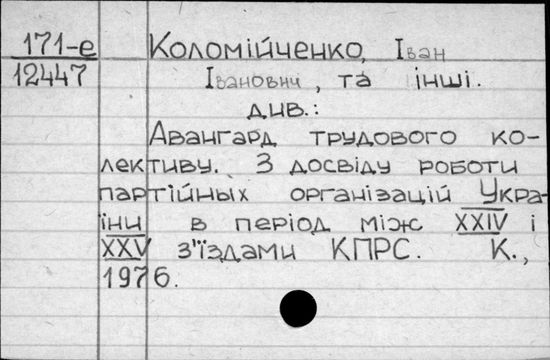 171-е Коломійченко, Іван
12447 Іванович, та інші.
див.:
Авангард трудового ко-
лективу. З досвіду роботи
партійных організацій Укра-
їни в період між XXIV і
XXV з'їздами КПРС. К.,
1976.